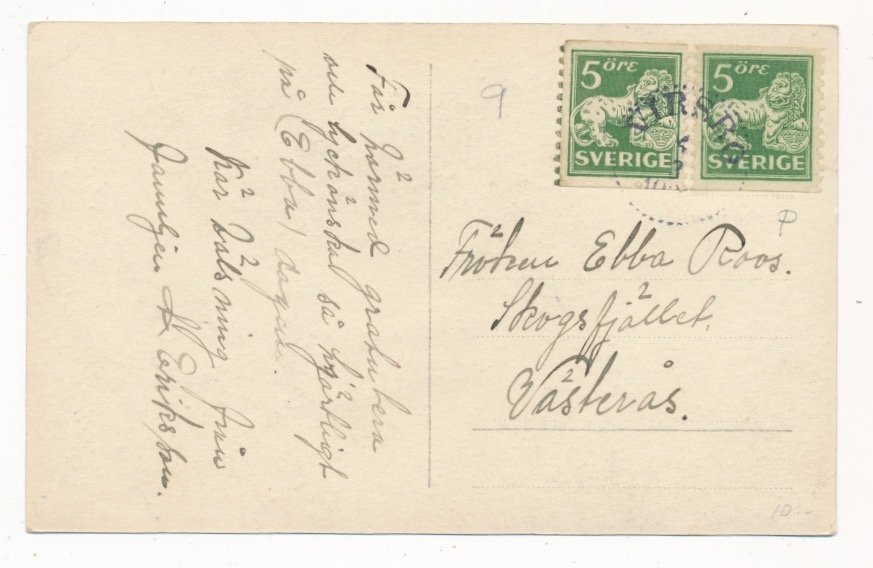 Får härmed gratulera
och lyckönska så hjärtligt
på Ebba dagen.
Kär hälsning från
Familjen Eriksson.
9
5 öre
SVERIGE
5 öre
SVERIGE
VIRSBO
P
Fröken Ebba Roos.
Skogsfjället.
Västerås.
10:-